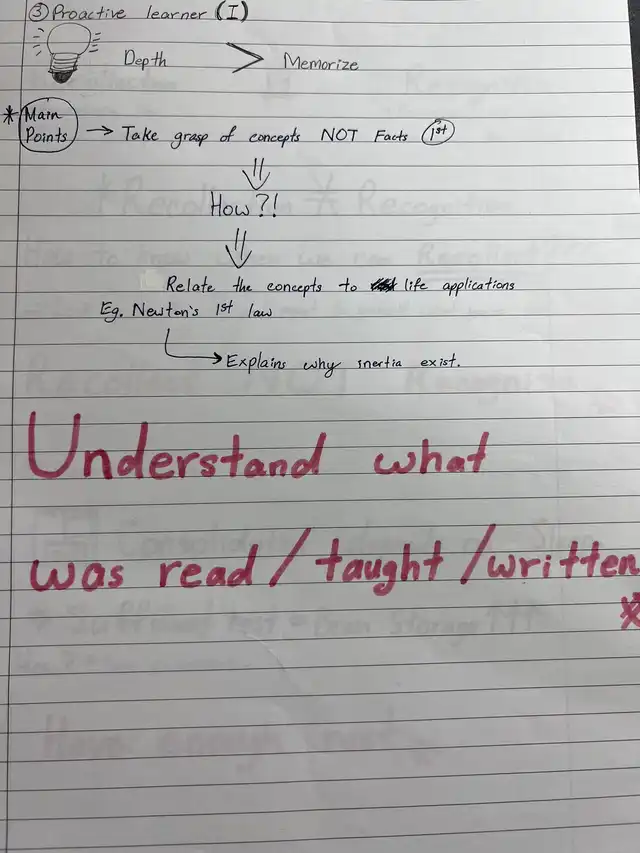 ③ Proactive learner (I)
Depth > Memorize
* Main Points → Take grasp of concepts NOT Facts 1st
How?!
Relate the concepts to life applications
Eg. Newton's 1st law
Explains why inertia exist.
Understand what
was read / taught / written
*